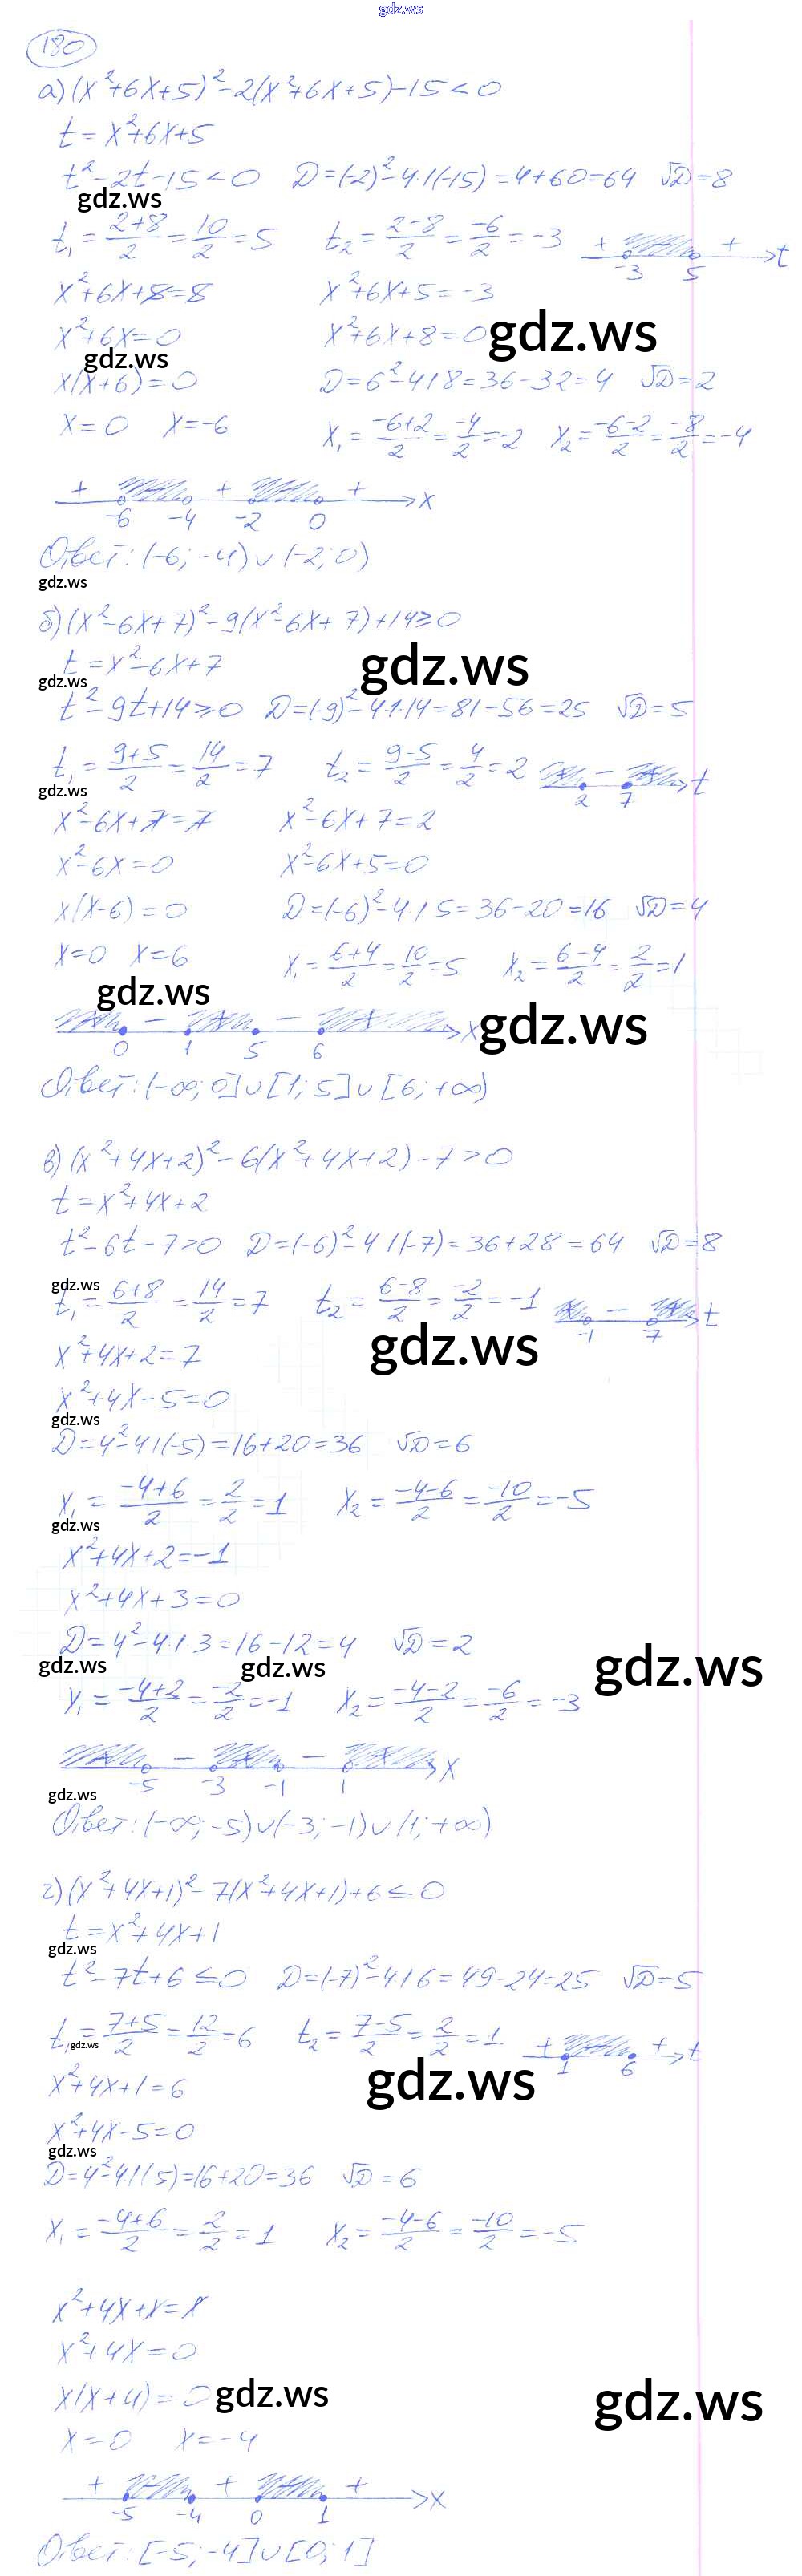 gdz.ws
180
а) (x²+6x+5)²-2(x²+6x+5)-15<0
t=x²+6x+5
t²-2t-15<0 D=(-2)²-4·1(-15)=4+60=64 √D=8
gdz.ws
t₁=(2+8)/2=10/2=5 t₂=(2-8)/2=-6/2=-3 + + t
-3 5
x²+6x+5=5 x²+6x+5=-3
x²+6x=0 x²+6x+8=0 gdz.ws
gdz.ws
x(x+6)=0 D=6²-4·1·8=36-32=4 √D=2
x=0 x=-6 x₁=(-6+2)/2=-4/2=-2 x₂=(-6-2)/2=-8/2=-4
+ + + x
-6 -4 -2 0
Ответ: (-6; -4)∪(-2; 0)
gdz.ws
б) (x²-6x+7)²-9(x²-6x+7)+14≥0
t=x²-6x+7 gdz.ws
gdz.ws
t²-9t+14≥0 D=(-9)²-4·1·14=81-56=25 √D=5
t₁=(9+5)/2=14/2=7 t₂=(9-5)/2=4/2=2 + - + t
gdz.ws 2 7
x²-6x+7=7 x²-6x+7=2
x²-6x=0 x²-6x+5=0
x(x-6)=0 D=(-6)²-4·1·5=36-20=16 √D=4
x=0 x=6 x₁=(6+4)/2=10/2=5 x₂=(6-4)/2=2/2=1
gdz.ws
+ - + - + x gdz.ws
0 1 5 6
Ответ: (-∞; 0]∪[1; 5]∪[6; +∞)
в) (x²+4x+2)²-6(x²+4x+2)-7>0
t=x²+4x+2
t²-6t-7>0 D=(-6)²-4·1(-7)=36+28=64 √D=8
gdz.ws
t₁=(6+8)/2=14/2=7 t₂=(6-8)/2=-2/2=-1 + - + t
-1 7
x²+4x+2=7 gdz.ws
x²+4x-5=0
gdz.ws
D=4²-4·1(-5)=16+20=36 √D=6
x₁=(-4+6)/2=2/2=1 x₂=(-4-6)/2=-10/2=-5
gdz.ws
x²+4x+2=-1
x²+4x+3=0
D=4²-4·1·3=16-12=4 √D=2
gdz.ws gdz.ws gdz.ws
x₁=(-4+2)/2=-2/2=-1 x₂=(-4-2)/2=-6/2=-3
+ - + - + x
-5 -3 -1 1
gdz.ws
Ответ: (-∞; -5)∪(-3; -1)∪(1; +∞)
г) (x²+4x+1)²-7(x²+4x+1)+6≤0
t=x²+4x+1
gdz.ws
t²-7t+6≤0 D=(-7)²-4·1·6=49-24=25 √D=5
t₁=(7+5)/2=12/2=6 t₂=(7-5)/2=2/2=1 + + t
gdz.ws 1 6
x²+4x+1=6 gdz.ws
x²+4x-5=0
gdz.ws
D=4²-4·1(-5)=16+20=36 √D=6
x₁=(-4+6)/2=2/2=1 x₂=(-4-6)/2=-10/2=-5
x²+4x+1=1
x²+4x=0
x(x+4)=0 gdz.ws gdz.ws
x=0 x=-4
+ + + x
-5 -4 0 1
Ответ: [-5; -4]∪[0; 1]